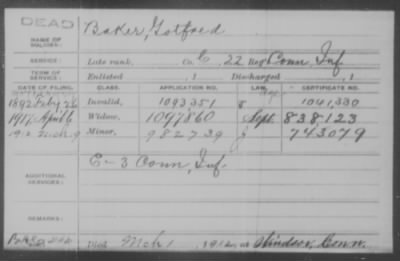 DEAD
NAME OF SOLDIER: Baker, Gotfred
SERVICE: Late rank, Co. C, 22 Reg't Conn. Inf.
TERM OF SERVICE: Enlisted , 1 Discharged , 1
DATE OF FILING. CLASS. APPLICATION NO. LAW. CERTIFICATE NO.
1892 Feby 26 Invalid, 1093351 1041,330
1917 April 6 Widow, 1097860 Sept. 838,123
1912 Mch 9 Minor, 982739 J 743079
ADDITIONAL SERVICES: E-3 Conn. Inf.
REMARKS:
Died Mch 1, 1912, at Windsor, Conn.